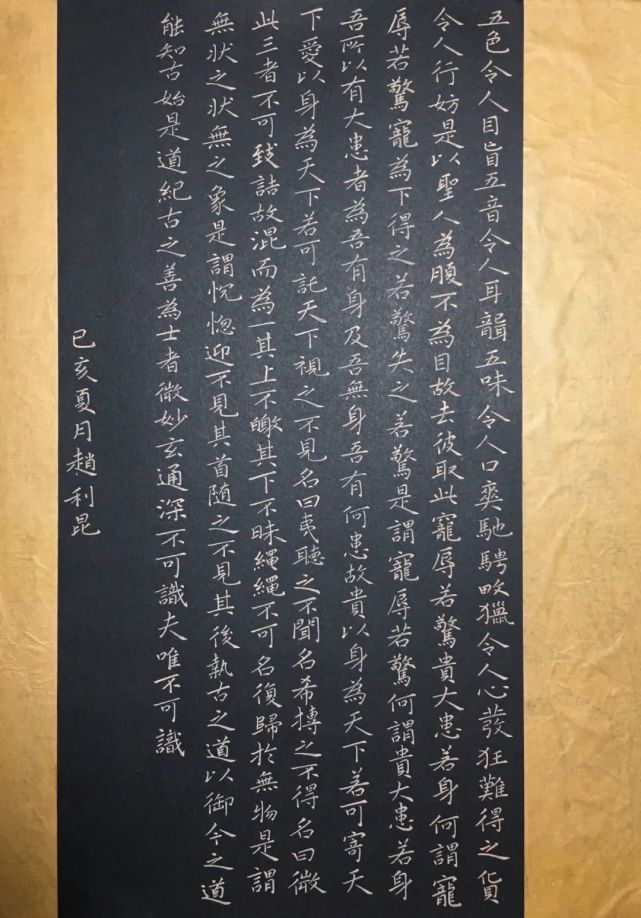 五色令人目盲五音令人耳聾五味令人口爽馳騁畋獵令人心發狂難得之貨
令人行妨是以聖人為腹不為目故去彼取此寵辱若驚貴大患若身何謂寵
辱若驚寵為下得之若驚失之若驚是謂寵辱若驚何謂貴大患若身
吾所以有大患者為吾有身及吾無身吾有何患故貴以身為天下若可寄天
下愛以身為天下若可託天下視之不見名曰夷聽之不聞名希摶之不得名曰微
此三者不可致詰故混而為一其上不皦其下不昧繩繩不可名復歸於無物是謂
無狀之狀無之象是謂恍惚迎不見其首隨之不見其後執古之道以御今之道
能知古始是道紀古之善為士者微妙玄通深不可識夫唯不可識
已亥夏月趙利昆